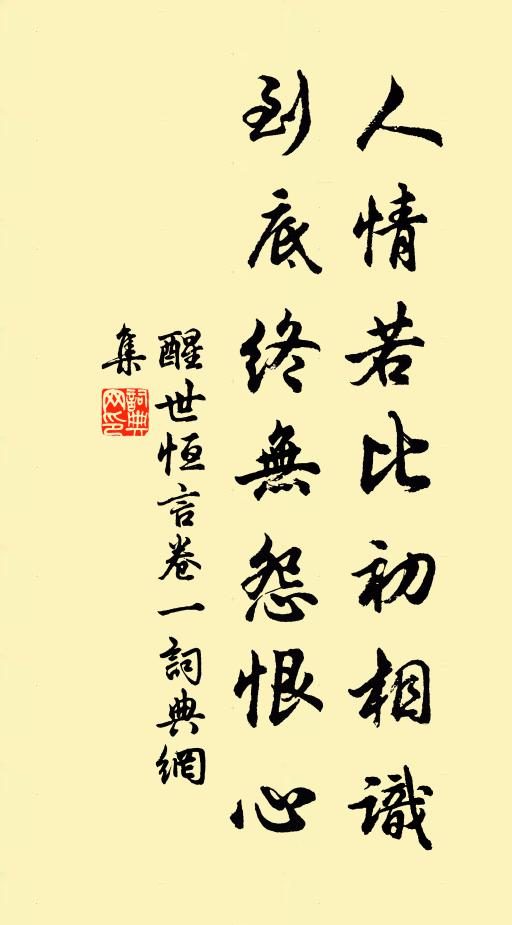 人情若比初相識
到底終無怨恨心
醒世恒言卷一詞典網
集
詞典
网印